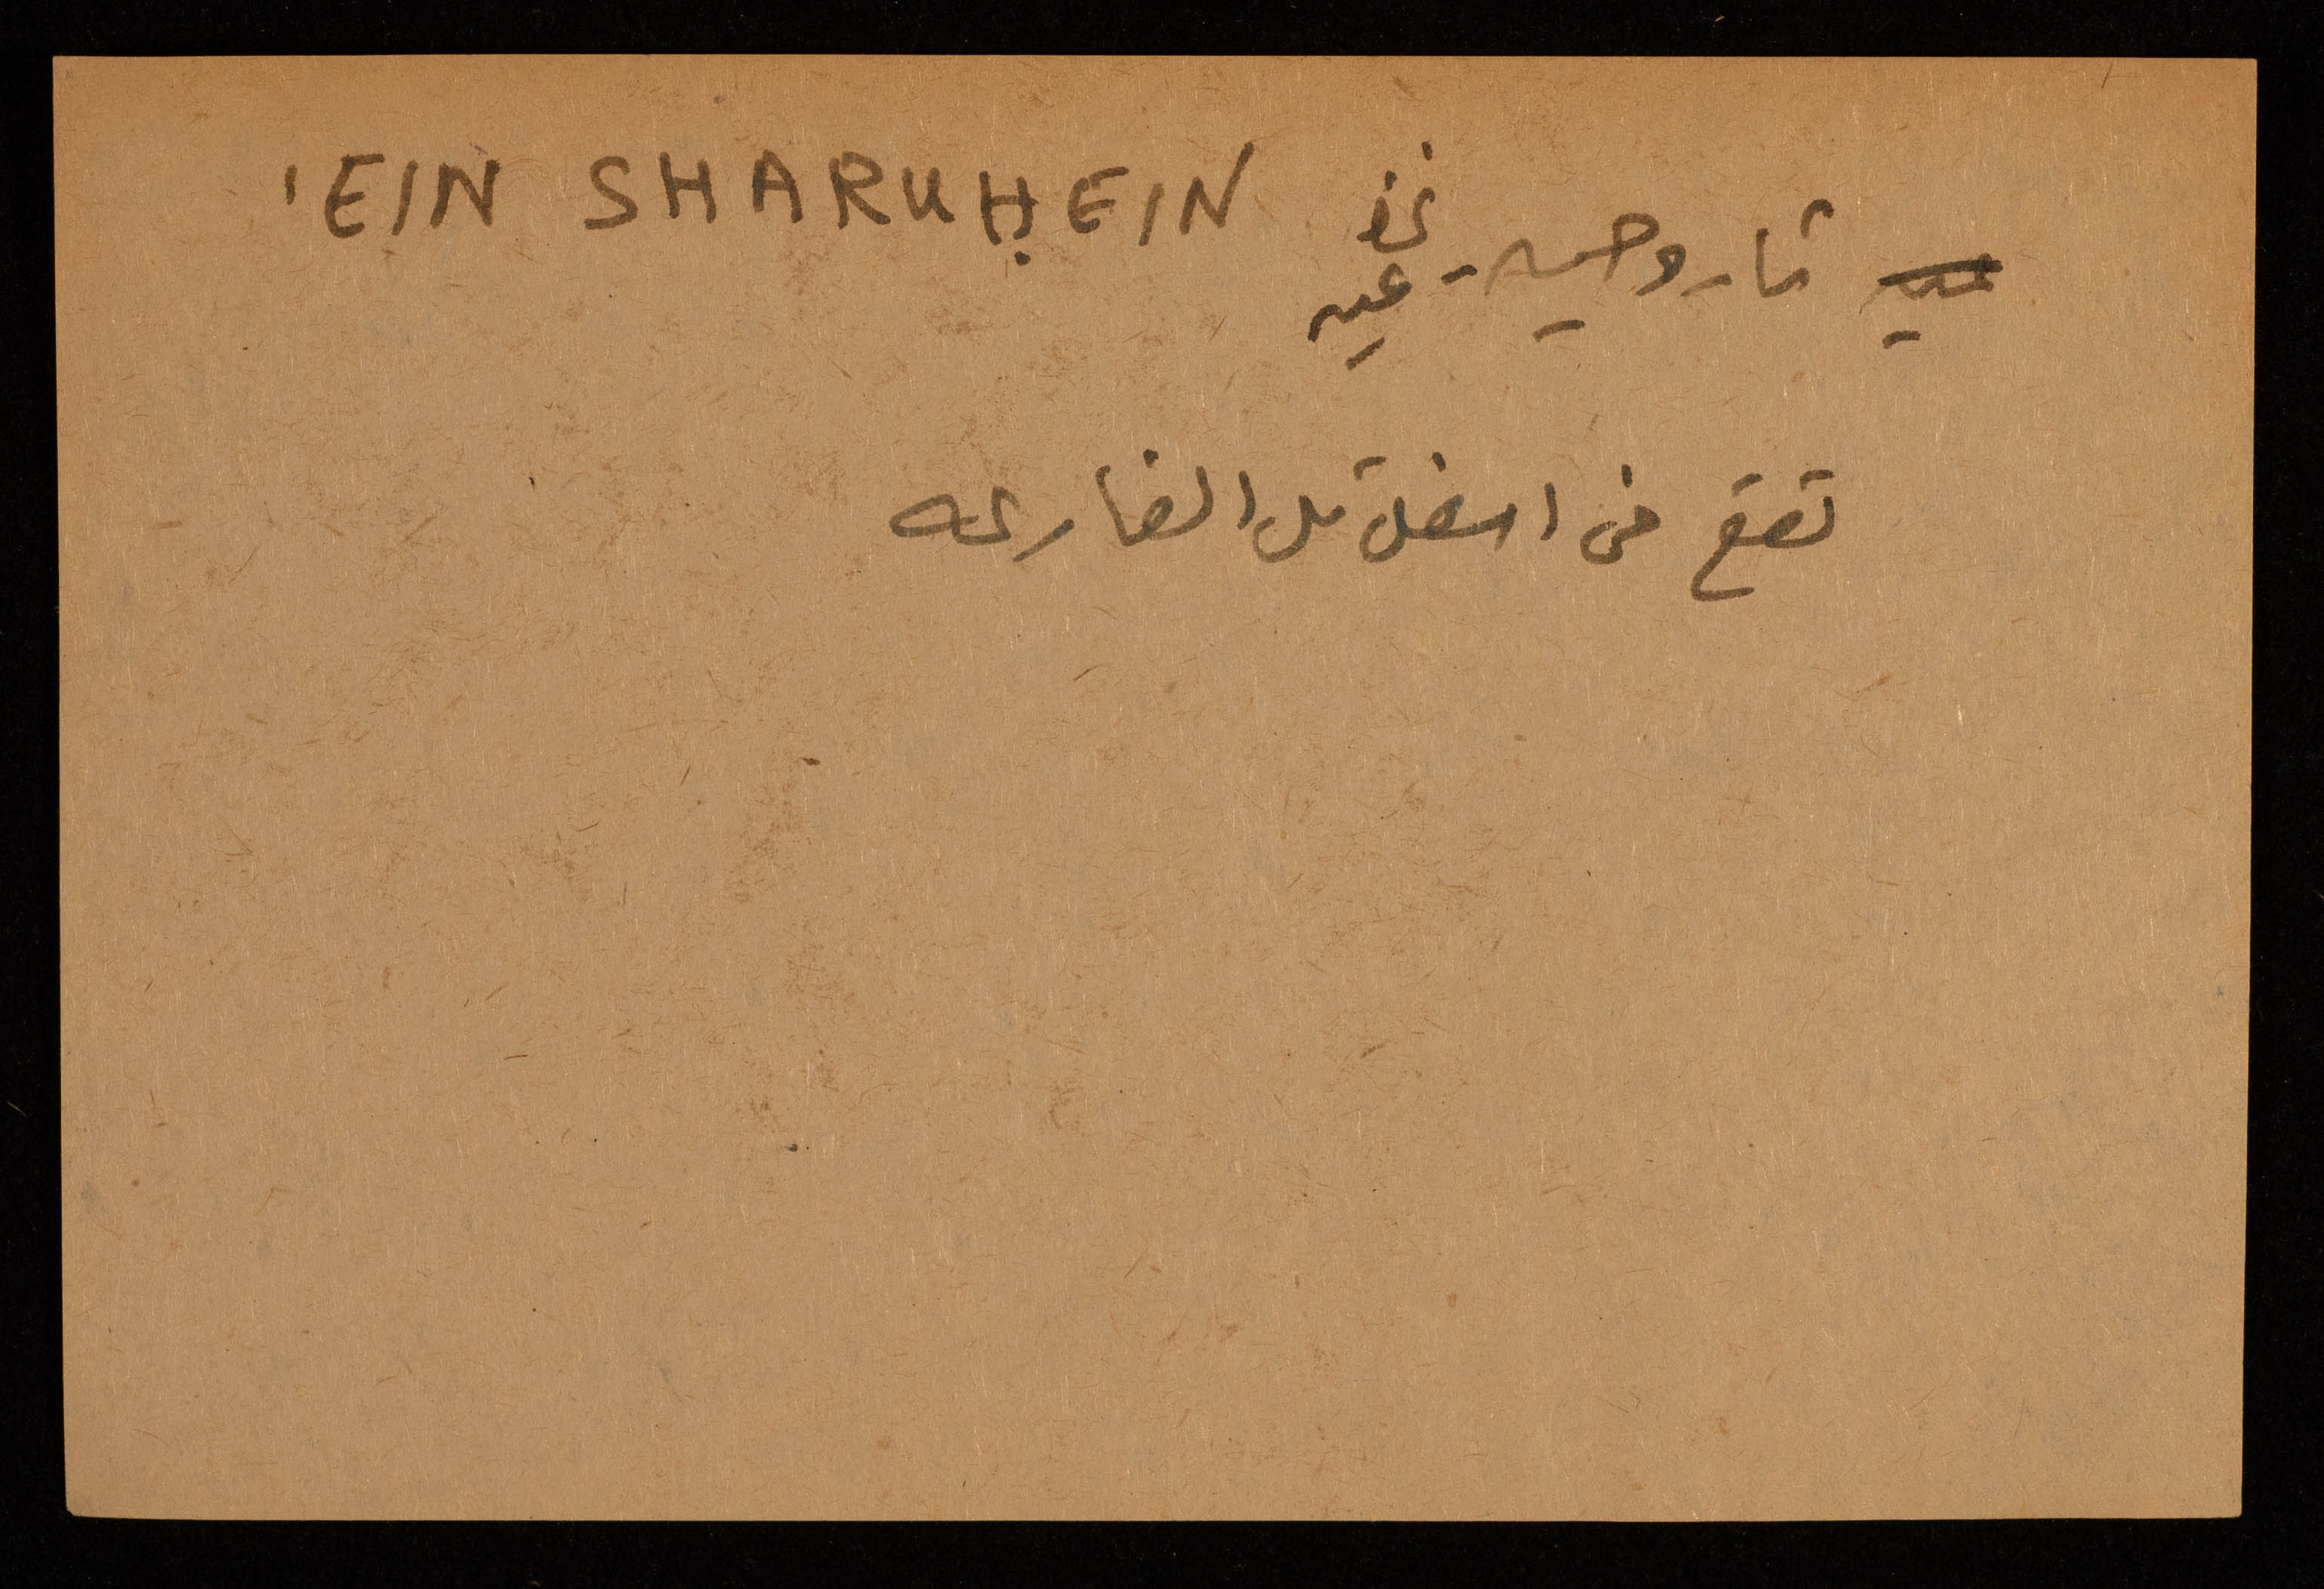 'EIN SHARUḤEIN
عين شاروحين - عين
تقع في اسفل تل الفارعه